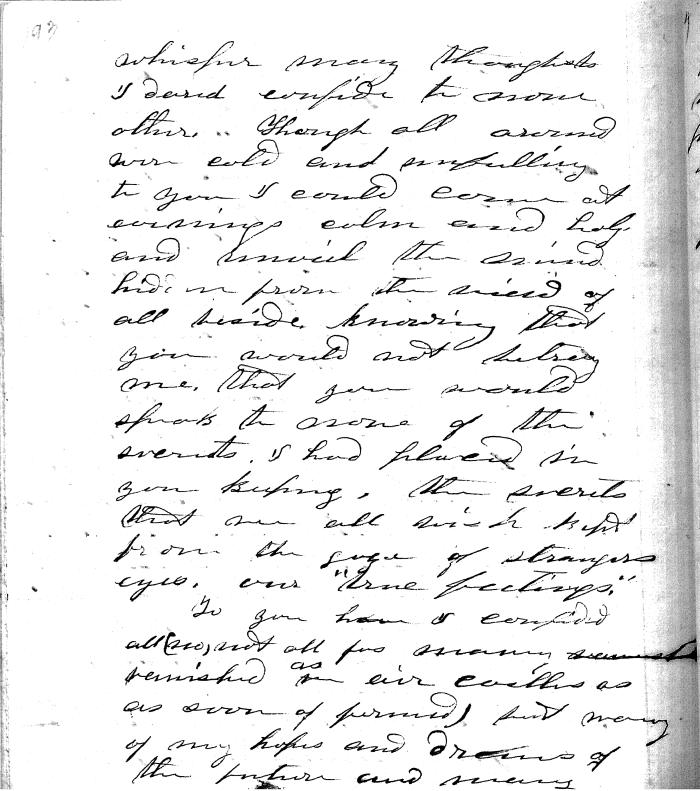 93
whisper many thoughts
I dared confide to none
other. .. Though all around
were cold and unfeeling
to you I could come at
evenings calm and holy
and unveil the mind
hidden from the view of
all beside, knowing that
you would not betray
me, that you would
speak to none of the
secrets. I had placed in
you keeping, the secrets
that we all wish kept
from the gaze of strangers
eyes. our "true feelings."
To you have I confided
all (no, not all for many
vanished as in air castles as
as soon of formed) but many
of my hopes and dreams of
the future and many